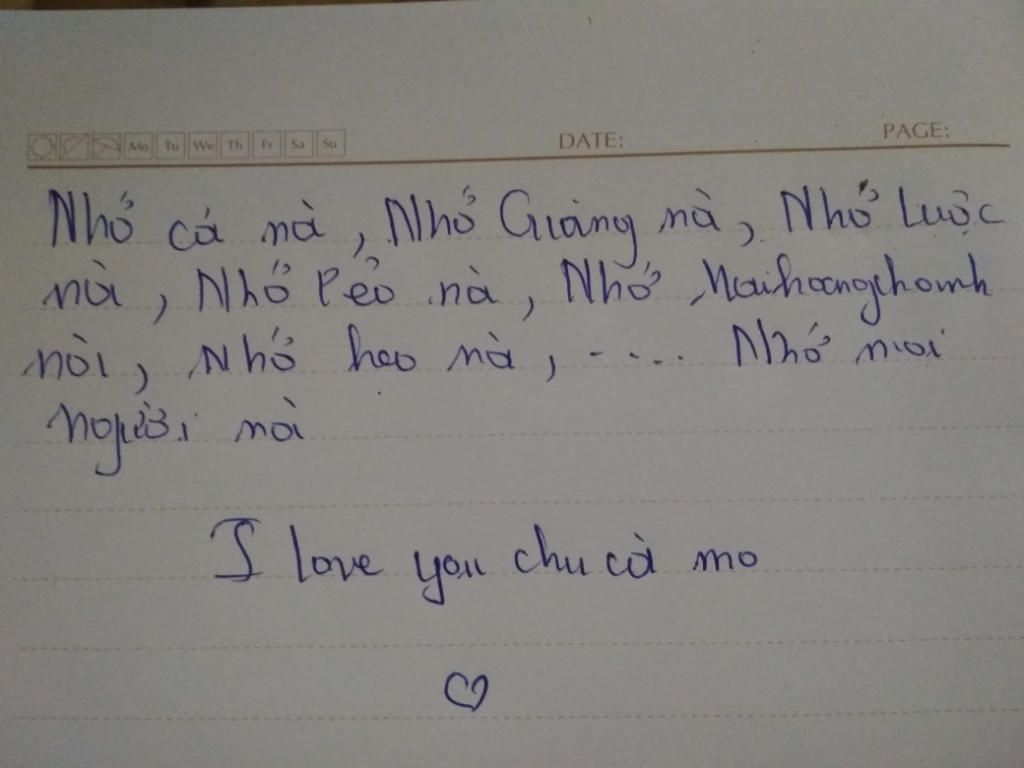 Mo Tu We Th Fr Sa Su DATE: PAGE:
Nhớ cá nà, Nhớ Giàng nà, Nhớ Lược
nà, Nhớ Pẻo nà, Nhớ Maihoangthanh
nòi, Nhớ heo nà, ..... Nhớ mọi
người nà
I love you chu cà mo